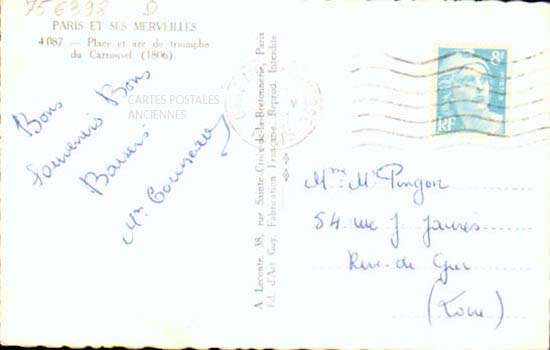 756398 D
PARIS ET SES MERVEILLES
4087 — Place et arc de triomphe
du Carrousel (1806)
Bons
Souvenirs Bons
Baisers
CARTES POSTALES
ANCIENNES
A. Leconte, 38, rue Sainte-Croix-de-la-Bretonnerie, Paris
Ed. d'Art Guy. Fabrication Française. Reprod. Interdite
8F
RF
Mme Mr Pingon
54 rue J Jaurès
Rive-de Gier
(Loire)